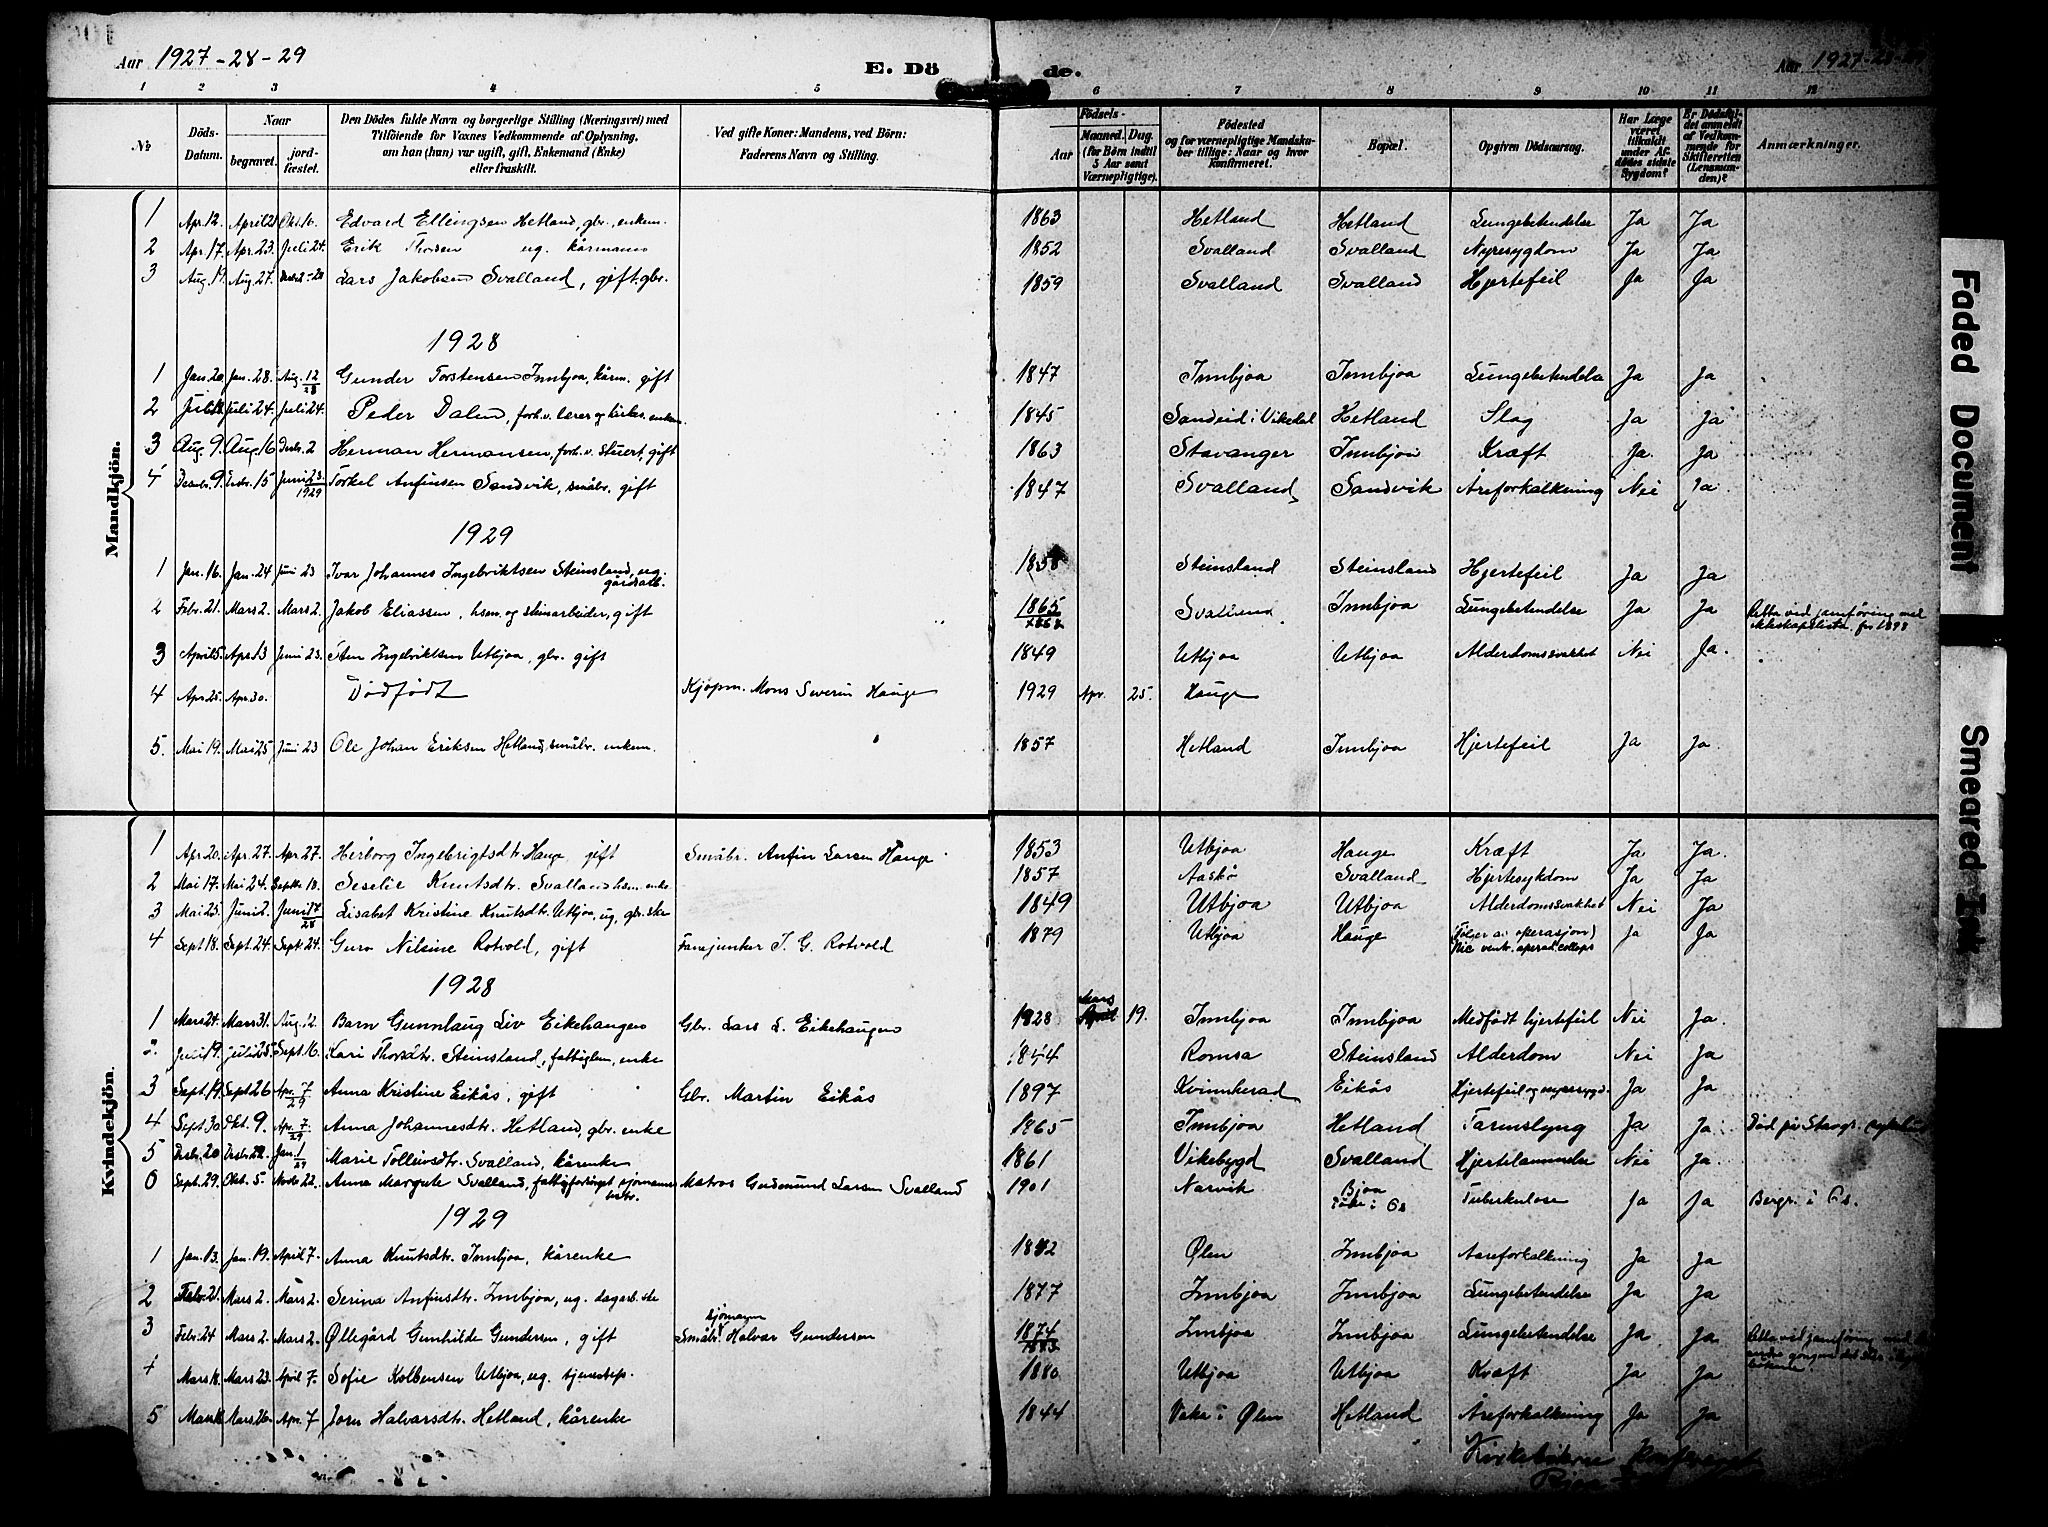 Aar 1927-28-29
E. Döde.
Aar 1927-28-29
1 2 3 4 5 6 7 8 9 10 11 12
No
Döds-Datum.
Naar
begravet.
jordfæstet.
Den Dödes fulde Navn og borgerlige Stilling (Næringsvei) med
Tilföiende for Voxnes Vedkommende af Oplysning,
om han (hun) var ugift, gift, Enkemand (Enke)
eller fraskilt.
Ved gifte Koner: Mandens, ved Börn:
Faderens Navn og Stilling.
Födsels-
Aar
Maaned. Dag.
(for Börn indtil
5 Aar samt
Værnepligtige).
Födested
og for værnepligtige Mandskaber tillige: Naar og hvor
konfirmeret.
Bopæl.
Opgiven Dödsaarsag.
Har Læge
været
tilkaldt
under Afdödes sidste
Sygdom?
Er Dödsfaldet anmeldt
af Vedkommende for
Skifteretten
(Lensmanden)?
Anmærkninger.
Mandkjön.
1 Apr. 12. April 21 Okt. 16. Edvard Ellingsen Hetland, gbr. enkem. 1863 Hetland Hetland Lungebetendelse Ja Ja
2 Apr. 17. Apr. 23. Juli 24. Erik Thorsen ug. kårmann 1852 Svalland Svalland Nyresygdom Ja Ja
3 Aug. 19. Aug. 27. Lars Jakobsen Svalland, gift. gbr. 1859 Svalland Svalland Hjertefeil Ja Ja
1928
1 Jan. 20. Jan. 28. Aug. 12/28 Gunder Torstensen Innbjoa, kårm. gift 1847 Innbjoa Innbjoa Lungebetendelse Ja Ja
2 Juli 24. Juli 24. Peder Dalen, forh.v. lærer og kirkes. enkem. 1845 Sandeid i Vikedal Hetland Slag Ja Ja
3 Aug. 9. Aug. 16 Desbr. 2 Herman Hermansen, forh.v. stuert, gift 1863 Stavanger Innbjoa Kræft Ja Ja
4 Desbr. 9. Desbr. 15 Juni 23. 1929 Torkel Anfinsen Sandvik, småbr. gift 1847 Svalland Sandvik Åreforkalkning Nei Ja
1929
1 Jan. 16. Jan. 24 Juni 23 Ivar Johannes Ingebriktsen Steinsland, ug. gårdsarb. 1858 Steinsland Steinsland Hjertefeil Ja Ja
2 Febr. 21. Mars 2. Mars 2. Jakob Eliassen, hsm. og steinarbeider, gift 1865 1868 Svalland Innbjoa Lungebetendelse Ja Ja Retta ved jamføring med
ekteskapslista for 1898
3 April 5. Apr. 13 Juni 23. Sten Ingebriktsen Utbjoa, gbr. gift 1849 Utbjoa Utbjoa Alderdomssvakhet Nei Ja.
4 Apr. 25. Apr. 30. Dødfødt Kjøpm. Mons Severin Hauge 1929 Apr. 25. Hauge
5. Mai 19. Mai 25 Juni 23 Ole Johan Eriksen Hetland, småbr. enkem. 1857 Hetland Innbjoa Hjertefeil Ja Ja.
Kvindekjön.
1 Apr. 20. Apr. 27. Apr. 27. Herborg Ingebrigtsdtr. Hauge, gift Småbr. Anfin Larsen Hauge 1853 Utbjoa Hauge Kræft Ja Ja.
2 Mai 17. Mai 24. Septbr. 18. Seselie Knutsdtr. Svalland hsm. enke 1857 Aaskø Svalland Hjertesykdom Ja Ja
3 Mai 23. Juni 2. Juni 17/28 Lisabet Kristine Knutsdtr. Utbjoa, ug, gbr. 1849 Utbjoa Utbjoa Alderdomssvakhet Nei Ja
4 Sept. 18. Sept. 24. Sept. 24. Guro Nilsine Rotvold, gift Fanejunker I. G. Rotvold 1879 Utbjoa Hauge Følger av operasjon) Ja Ja
1928
1 Mars 24. Mars 31. Aug. 12. Barn Gunnlaug Liv Eikehaugen Gbr. Lars L. Eikehaugen 1928 Mars April 19. Innbjoa Innbjoa Medfødt hjertefeil Nei Ja.
2. Juli 19. Juli 25. Sept. 16. Kari Thorsdtr. Steinsland, fattiglem, enke 1844 Romsa Steinsland Alderdom Nei Ja
3 Sept. 19. Sept. 26 Apr. 7/29 Anna Kristine Eikås, gift Gbr. Martin Eikås 1897 Kvinnherad Eikås Hjertefeil og nyresygd. Ja Ja
4 Sept. 30. Okt. 9. Apr. 7/29 Anna Johannesdtr. Hetland, gbr. enke 1865 Innbjoa Hetland Tarmslyng Ja Ja. Død på Stavgr. sykehus
5 Desbr. 20 Desbr. 28. Jan. 1/29 Marie Tollevsdtr. Svalland, kårenke 1861 Vikebygd Svalland Hjertelammelse Nei Ja.
6 Sept. 29. Okt. 5. Novbr. 22. Anna Margrete Svalland, fattigforsørget sjømanns Matros Gudmund Larsen Svalland 1901 Narvik Bjoa Tuberkulose Ja Ja
1929
1 Jan. 13. Jan. 19. April 7. Anna Knutsdtr. Innbjoa, kårenke 1842 Ølen Innbjoa Aareforkalkning Ja Ja
2 Febr. 21. Mars 2. Mars 2. Serina Anfinsdtr. Innbjoa, ug. dagarb.ske 1877 Innbjoa Innbjoa Lungebetendelse Ja Ja
3 Febr. 24 Mars 2. Mars 2. Øllegård Gunhilde Gundersen, gift sjømann
Småbr. Halvar Gundersen 1874 1883 Innbjoa Innbjoa Lungebetendelse Ja Ja. Retta ved jamføring med
4 Mars 18. Mars 23. April 7. Sofie Kolbensen Utbjoa, ug. tjenestep. 1880 Utbjoa Utbjoa Kræft Ja Ja
5 Mars 26. Apr. 7 Jorn Halvarsdtr. Hetland, kårenke 1844 Vaka i Ølen Hetland Åreforkalkning Ja Ja
Faded Document
Smeared Ink